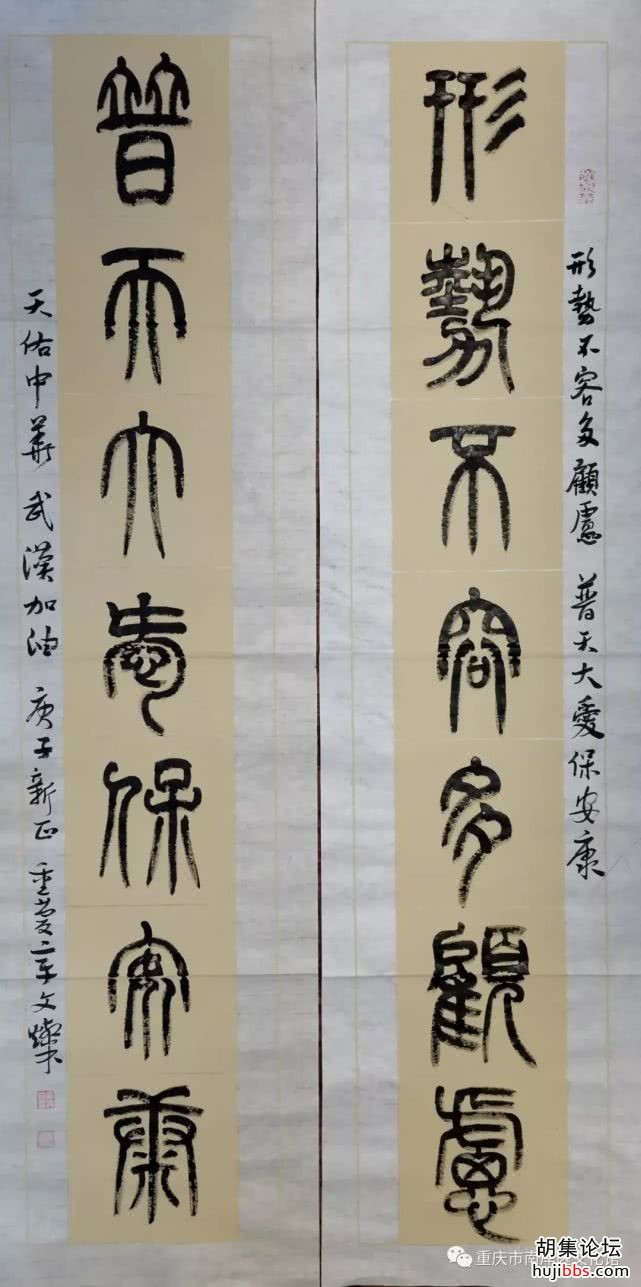 形勢不容多顧慮 普天大愛保安康
形勢不容多顧慮
普天大愛保安康
天佑中華 武漢加油 庚子新正 重慶 文燦書
重庆市南岸区文化馆
胡集论坛
hujibbs.com